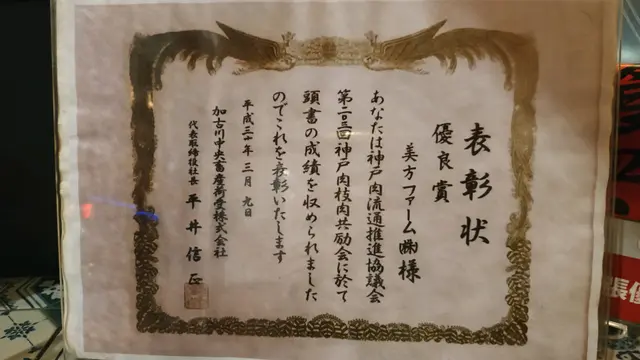 表彰状
優良賞
美方ファーム㈱様
あなたは神戸肉流通推進協議会
第二〇三回神戸肉枝肉共励会に於て
頭書の成績を収められました
のでこれを表彰いたします
平成三十年三月九日
加古川中央畜産荷受株式会社
代表取締役社長 平井信正
張優